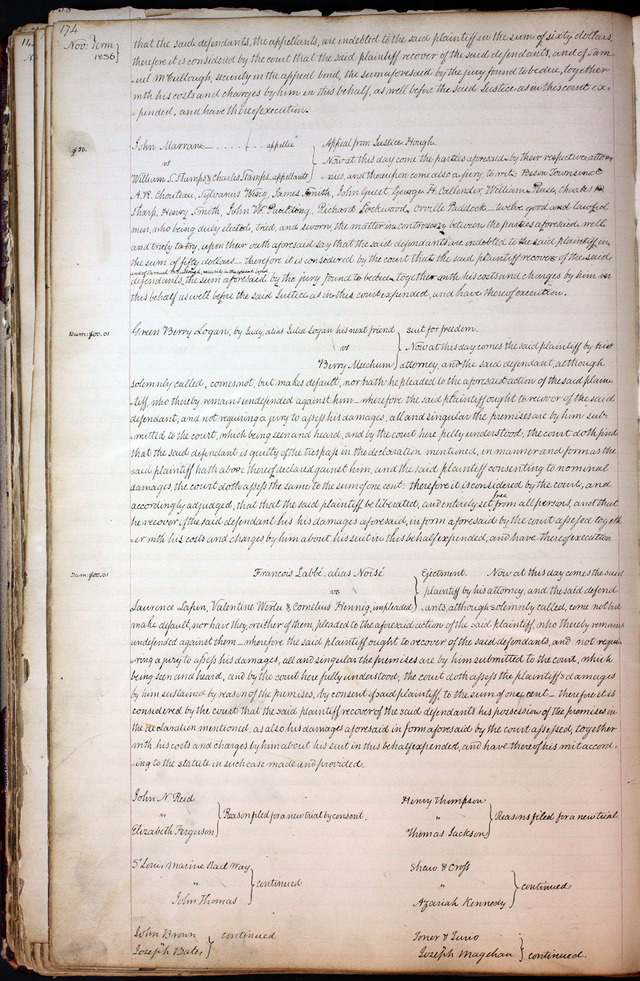 174
Nov. Term
1836
that the said defendants, the appellants, are indebted to the said plaintiff in the sum of sixty dollars,
therefore it is considered by the court that the said plaintiff recover of the said defendants, and of Sam-
uel McCullough, security in the appeal bond, the sum aforesaid by the jury found to be due, together
with his costs and charges by him in this behalf, as well before the said Justice as in this court ex-
pended, and have thereof execution.
John Marrane appellee } Appeal from Justice Hough.
vs Now at this day come the parties aforesaid by their respective attor-
William S. Stamps & Charles Stamps, appellants nies, and thereupon come also a jury, to wit:
A. R. Chouteau, Sylvanus Wing, James Smith, John Guest, George H. Callender, William Russ, Charles
Sharp, Henry Smith, John W. Paulding, Richard Lockwood, Orville Paddock twelve good and lawful
men, who being duly elected, tried, and sworn, the matter in controversy between the parties aforesaid, well
and truly to try, upon their oath aforesaid say that the said defendants are indebted to the said plaintiff in
the sum of fifty dollars – therefore it is considered by the court that the said plaintiff recover of the said
defendants, the sum aforesaid by the jury found to be due, together with his costs and charges by him in
this behalf as well before the said Justice as in this court expended, and have thereof execution.
Dam: $00.01
Green Berry Logan, by Judy, alias Julia Logan his next friend } suit for freedom.
vs Now at this day comes the said plaintiff by his
Berry Meechum attorney, and the said defendant, although
solemnly called, comes not, but makes default, nor hath he pleaded to the aforesaid action of the said plain-
tiff, who thereby remains undefended against him – wherefore the said plaintiff ought to recover of the said
defendant, and not requiring a jury to assess his damages, all and singular the premises are by him sub-
mitted to the court, which being seen and heard, and by the court here fully understood, the court doth find
that the said defendant is guilty of the trespass in the declaration mentioned, in manner and form as the
said plaintiff hath above thereof declared against him, and the said plaintiff consenting to nominal
damages, the court doth assess the same to the sum of one cent: therefore it is considered by the court, and
accordingly adjudged, that the said plaintiff be liberated, and entirely set free from all persons, and that
he recover of the said defendant his his damages aforesaid, in form aforesaid by the court assessed togeth-
er with his costs and charges by him about his suit in this behalf expended, and have thereof execution
Dam: $00.01
Francois Labbé alias Noisé } Ejectment. Now at this day comes the said
vs plaintiff by his attorney, and the said defend-
Laurence Lapin, Valentine Werle & Cornelius Hennig, impleaded ants, although solemnly called, come not but
make default, nor have they, or either of them, pleaded to the aforesaid action of the said plaintiff, who thereby remains
undefended against them – wherefore the said plaintiff ought to recover of the said defendants, and not requi-
ring a jury to assess his damages, all and singular the premises are by him submitted to the court, which
being seen and heard, and by the court here fully understood, the court doth assess the plaintiff's damages
by him sustained by reason of the premises, by consent of said plaintiff, to the sum of one cent – therefore it is
considered by the court that the said plaintiff recover of the said defendants his possession of the premises in
the declaration mentioned, as also his damages aforesaid in form aforesaid by the court assessed, together
with his costs and charges by him about his suit in this behalf expended, and have thereof his writ accord-
ing to the statute in such case made and provided.
John N. Reid
" } Reasons filed for a new trial by consent.
Elizabeth Ferguson
Henry Thompson
" } Reasons filed for a new trial
Thomas Jackson
St Louis Marine Rail Way
" } continued
John Thomas
Shaw & Cross
" } continued
Azariah Kennedy
John Brown
Joseph Bates } continued
Toner &
Joseph Magehan } continued.